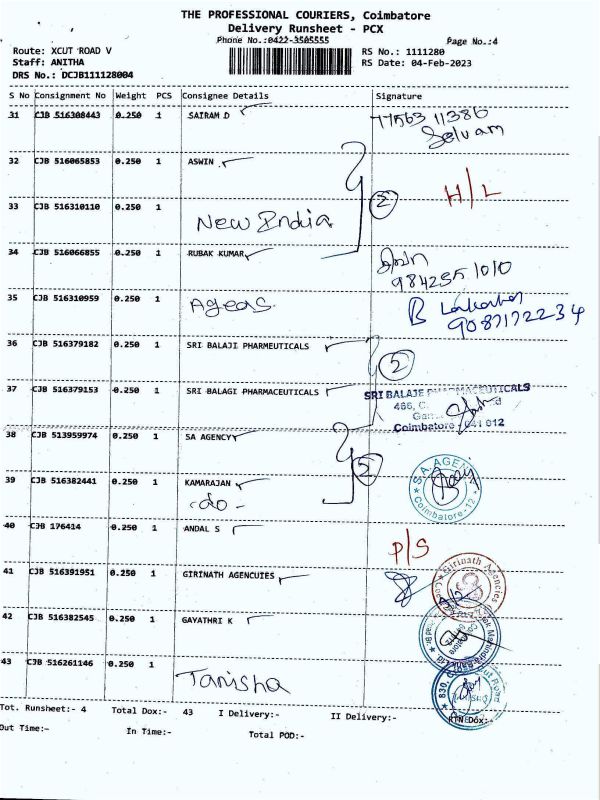 THE PROFESSIONAL COURIERS, Coimbatore
Delivery Runsheet - PCX
Phone No.:0422-3505555 Page No.:4
Route: XCUT ROAD V RS No.: 1111280
Staff: ANITHA RS Date: 04-Feb-2023
DRS No.: DCJB111128004
S No Consignment No Weight PCS Consignee Details Signature
31 CJB 516308443 0.250 1 SAIRAM D
Selvam
32 CJB 516065853 0.250 1 ASWIN
2 H/L
33 CJB 516310110 0.250 1
New India
34 CJB 516066855 0.250 1 RUBAK KUMAR
9842551010
35 CJB 516310959 0.250 1
Ageas B
9087172234
36 CJB 516379182 0.250 1 SRI BALAJI PHARMEUTICALS
2
37 CJB 516379153 0.250 1 SRI BALAGI PHARMACEUTICALS
SRI BALAJE PHARMACEUTICALS
466, C.
Coimbatore - 641 012
38 CJB 513959974 0.250 1 SA AGENCY
2
S.A. AGENCY
Coimbatore-12
39 CJB 516382441 0.250 1 KAMARAJAN
-do-
40 CJB 176414 0.250 1 ANDAL S
P/S
41 CJB 516391951 0.250 1 GIRINATH AGENCUIES
Girinath Agencies
42 CJB 516382545 0.250 1 GAYATHRI K
43 CJB 516261146 0.250 1
Tanisha
830, Cross Cut Road
Tot. Runsheet:- 4 Total Dox:- 43 I Delivery:- II Delivery:- RTN Dox:-
Out Time:- In Time:- Total POD:-